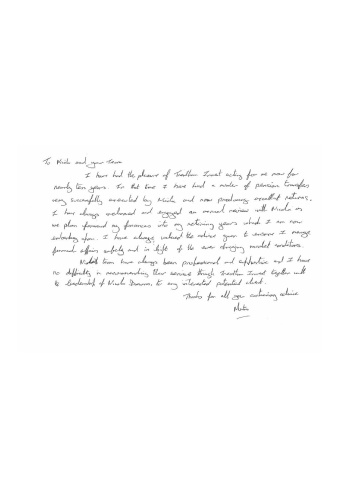 To Nick and your Team
I have had the pleasure of Invest acting for me now for
nearly ten years. In that time I have had a number of pension transfers
very successfully executed by Nick and now producing excellent returns.
I have always welcomed and enjoyed an annual review with Nick as
we plan forward my finances into my retiring years which I am now
embarking upon. I have always valued the advice given to ensure I manage
financial affairs wisely and in light of the ever changing market conditions.
team have always been professional and and I have
no difficulty in recommending their services through Invest together with
the leadership of to any interested potential client.
Thanks for all your continuing advice